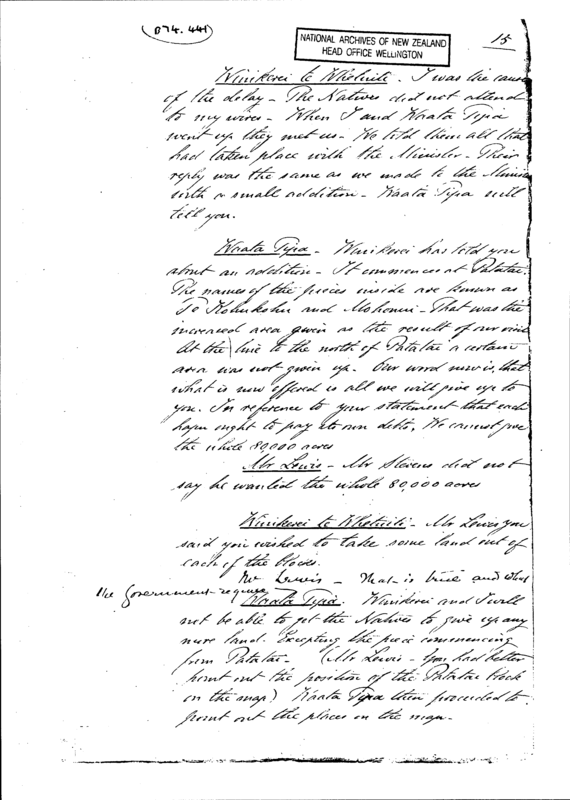 (874.441)
NATIONAL ARCHIVES OF NEW ZEALAND
HEAD OFFICE WELLINGTON
15
Winikerei te Whetuiti. I was the cause
of the delay - The Natives did not attend
to my wires - When I and Waata Tipa
went up they met us - We told them all that
had taken place with the Minister - Their
reply was the same as we made to the Minis
with a small addition - Waata Tipa will
tell you.
Waata Tipa - Winikerei has told you
about an addition - It commences at Patatae
The names of the pieces inside are known as
Te Kohukohu and - That was the
increased area given as the result of our visit
At the line to the north of Patatae a certain
area was not given up. Our word now is, that
what is now offered is all we will give up to
you. In reference to your statement that each
hapu ought to pay its own debts, We cannot give
the whole 80,000 acres
Mr Lewis - Mr Stevens did not
say he wanted the whole 80,000 acres
Winikerei te Whetuiti - Mr Lewis you
said you wished to take some land out of
each of the blocks.
Mr Lewis - That is true and what
the Government require
Waata Tipa. Winikerei and I will
not be able to get the Natives to give up any
more land. Excepting the piece commencing
from Patatae - (Mr Lewis - You had better
point out the position of the Patatae block
on the map) Waata Tipa then proceeded to
point out the places on the map.